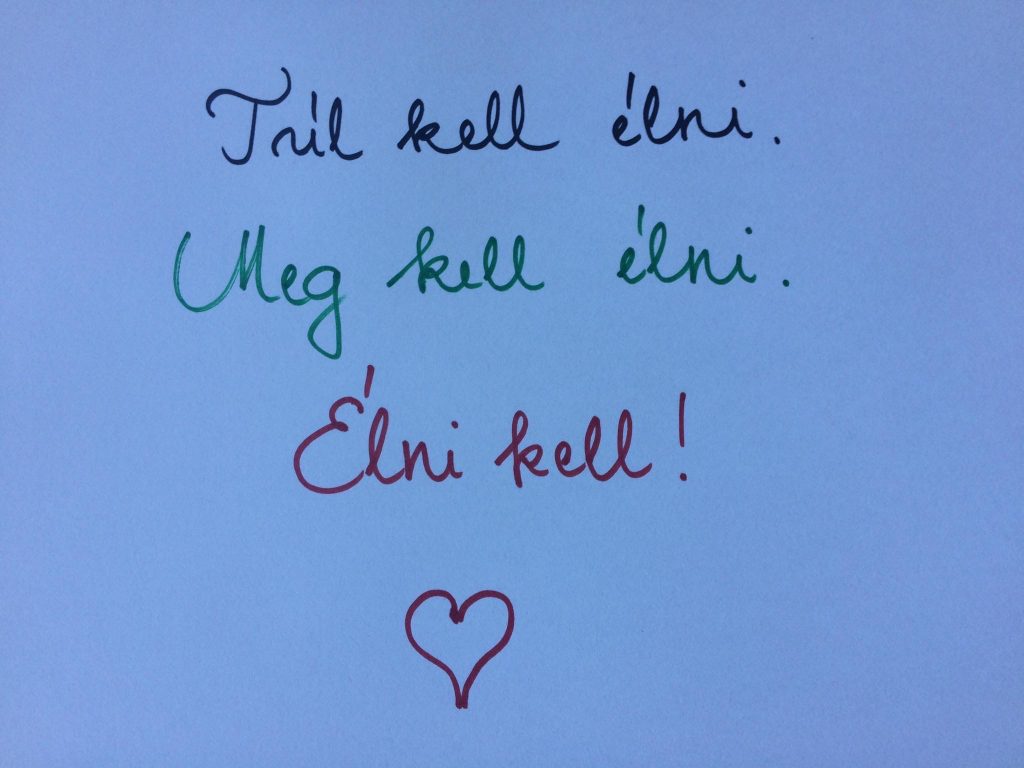 Túl kell élni.
Meg kell élni.
Élni kell!